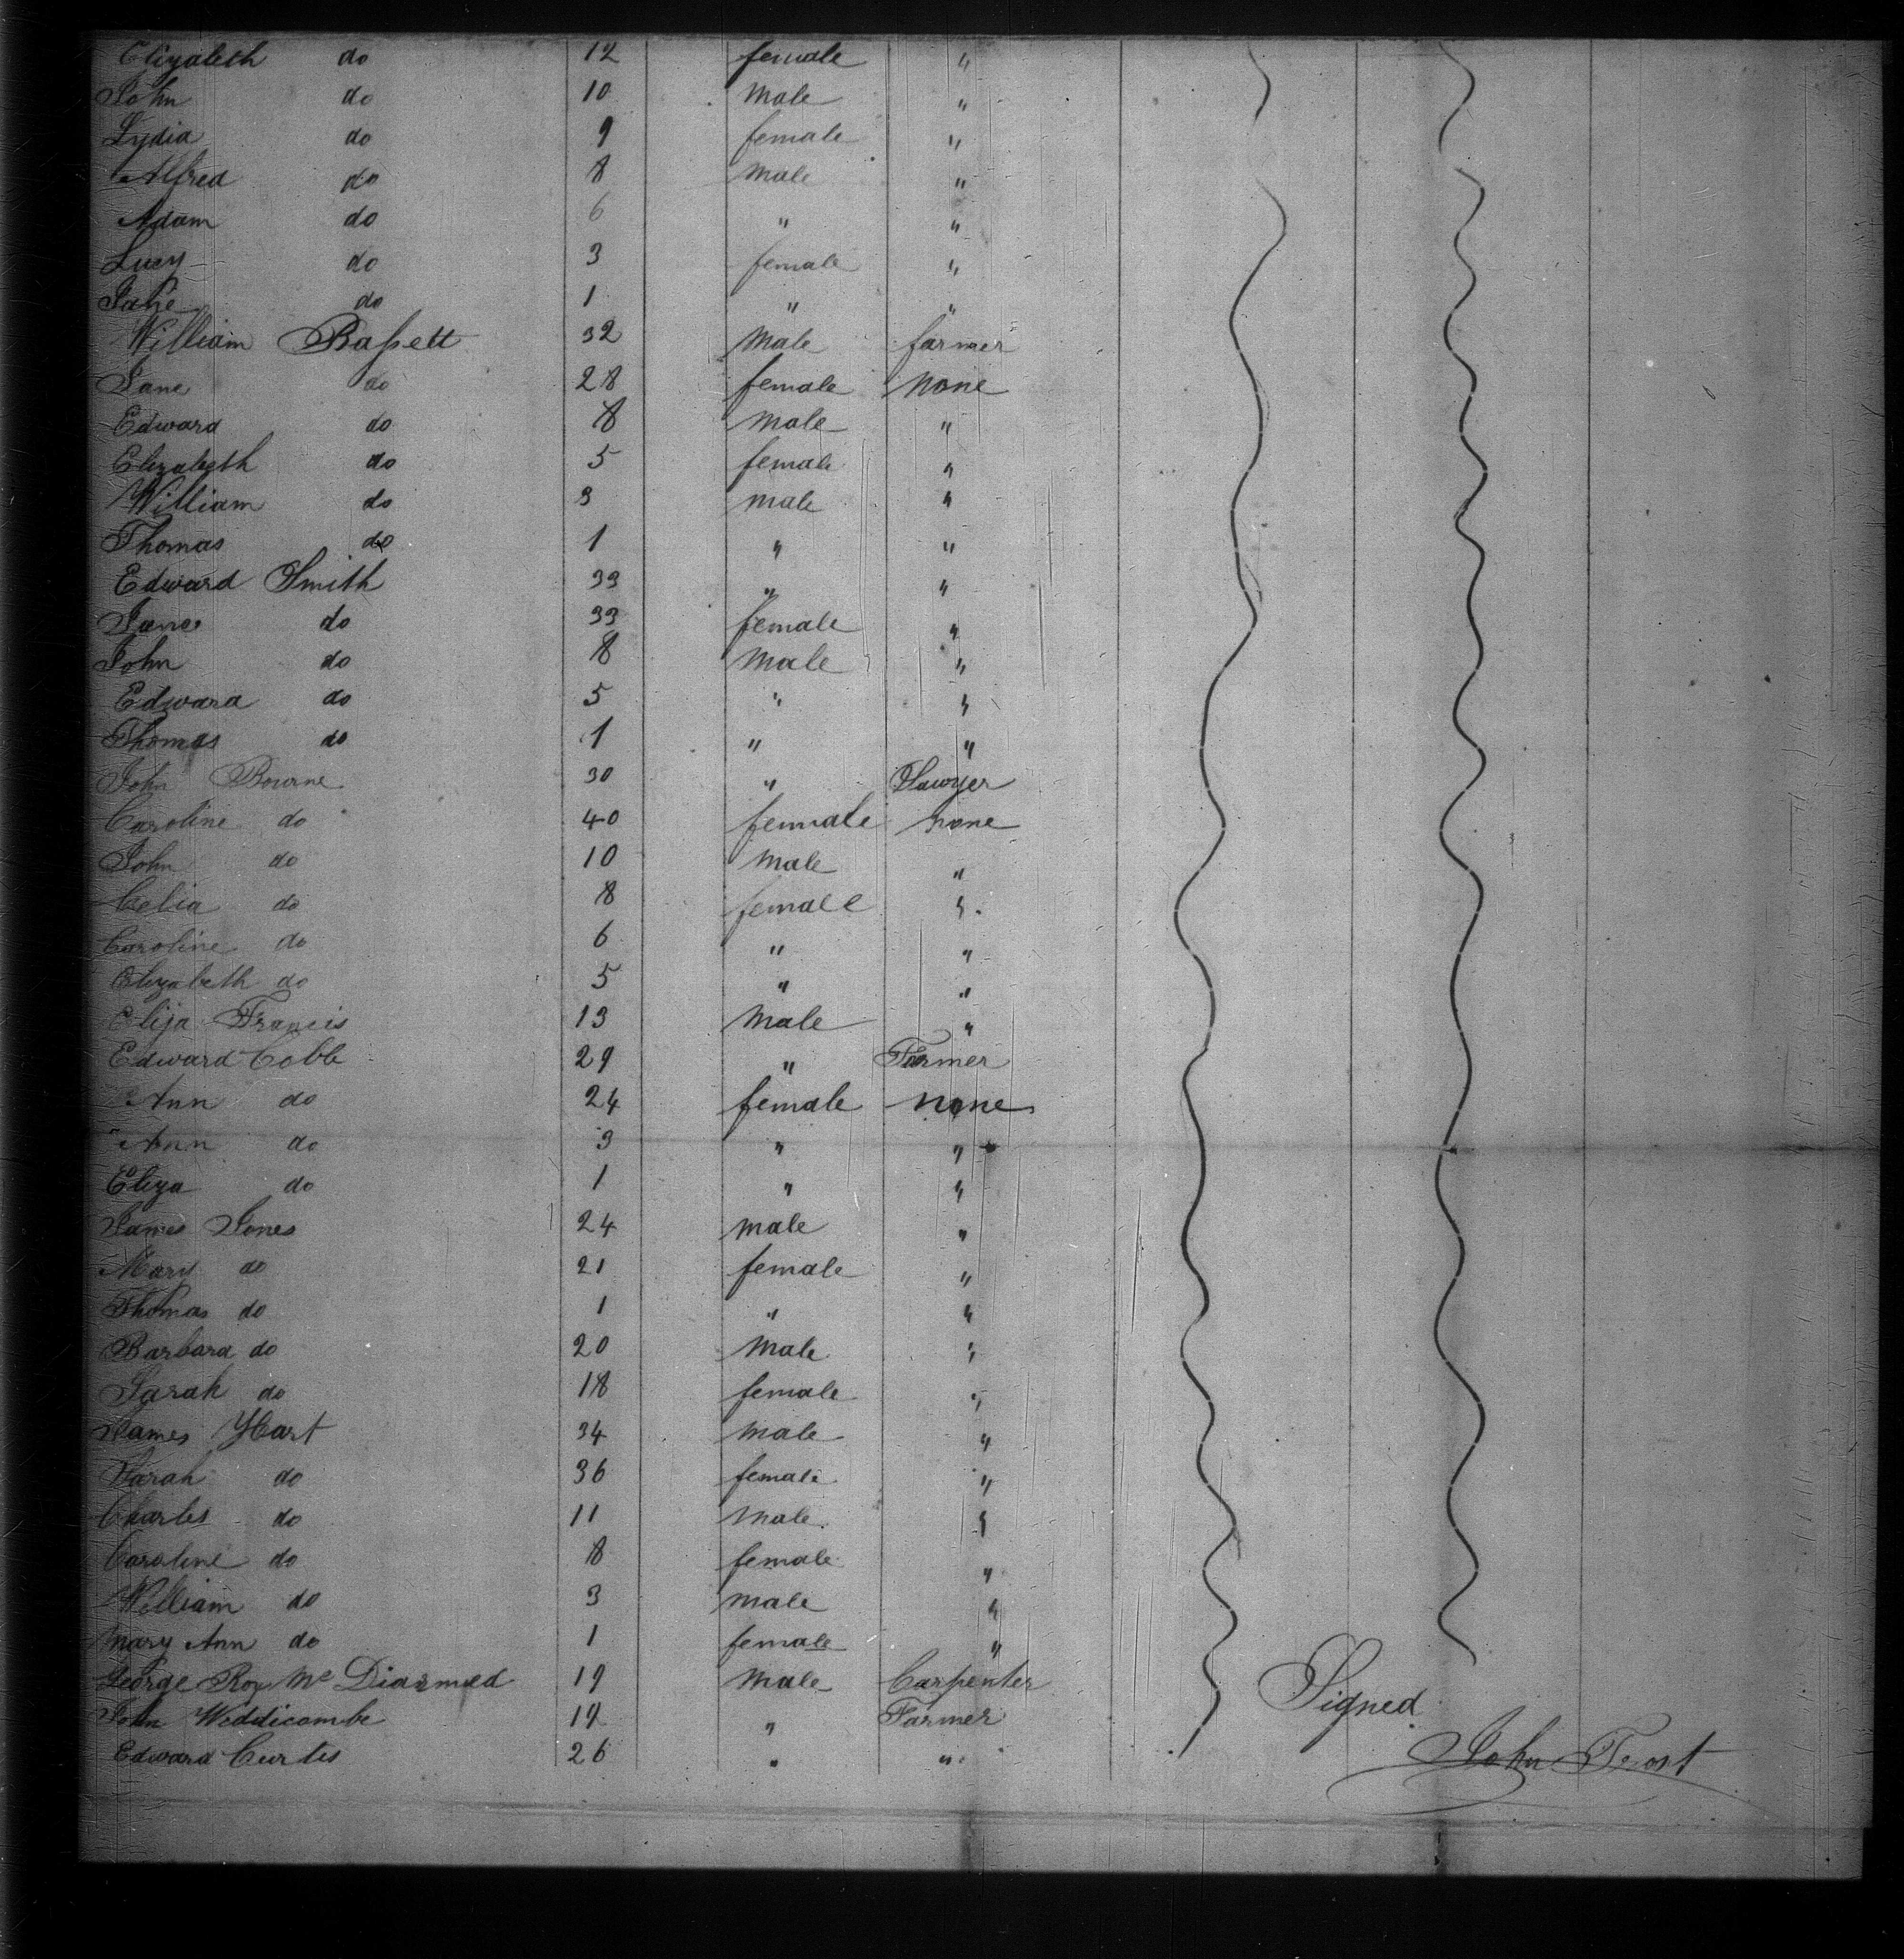 Elizabeth do 12 female "
John do 10 male "
Lydia do 9 female "
Alfred do 8 male "
Adam do 6 " "
Lucy do 3 female "
Jane do 1 " "
William Baſsett 32 male farmer
Jane do 28 female none
Edward do 8 male "
Elizabeth do 5 female "
William do 3 male "
Thomas do 1 " "
Edward Smith 33 " "
Jane do 33 female "
John do 8 male "
Edward do 5 " "
Thomas do 1 " "
John Bourne 30 " Sawyer
Caroline do 40 female none
John do 10 male "
Celia do 8 female "
Caroline do 6 " "
Elizabeth do 5 " "
Elija Francis 13 male "
Edward Cobb 29 " Farmer
Ann do 24 female none
Ann do 3 " "
Eliza do 1 " "
James Jones 24 male "
Mary do 21 female "
Thomas do 1 " "
Barbara do 20 male "
Sarah do 18 female "
James Hart 34 male "
Sarah do 36 female "
Charles do 11 male "
Caroline do 8 female "
William do 3 male "
Mary Ann do 1 female "
George Roy Mc Diarmed 19 male Carpenter
John Weddicombe 19 " Farmer
Edward Curtis 26 " "
Signed
John Frost